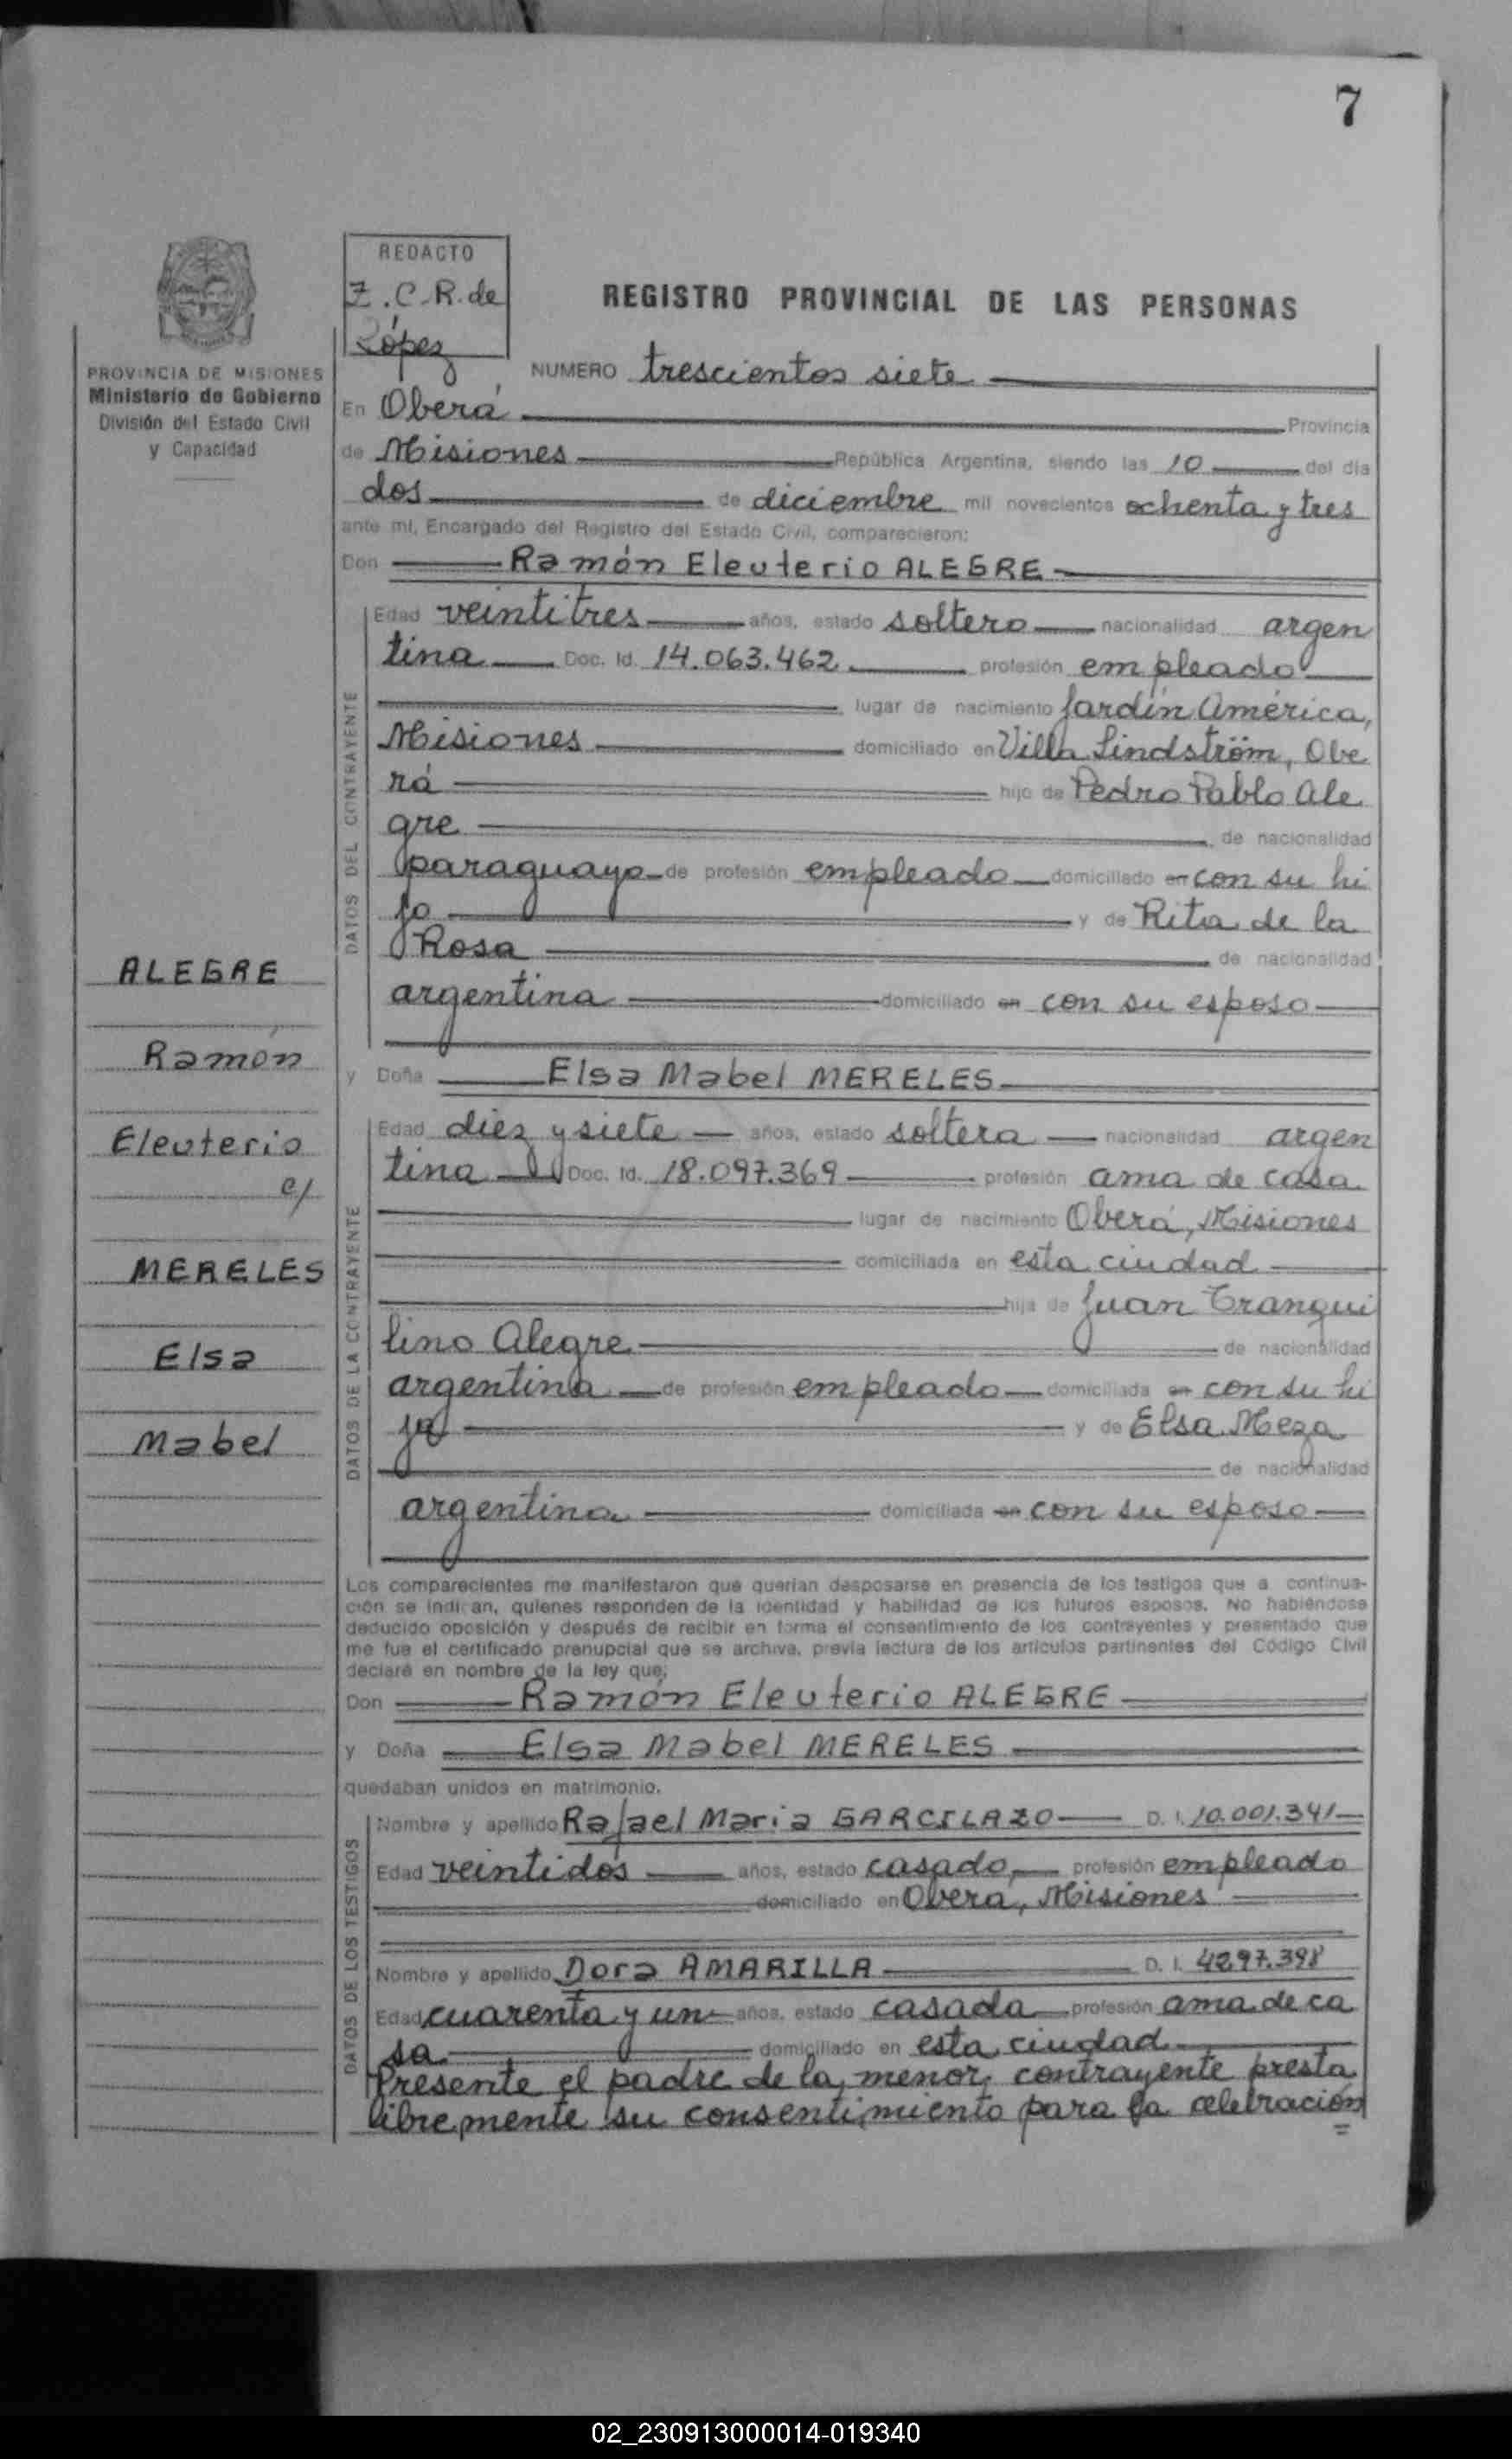 7
REDACTO
Z.C.R. de
López
REGISTRO PROVINCIAL DE LAS PERSONAS
PROVINCIA DE MISIONES
Ministerio de Gobierno
División del Estado Civil
y Capacidad
NUMERO trescientos siete
En Oberá Provincia
de Misiones República Argentina, siendo las 10 del día
dos de diciembre mil novecientos ochenta y tres
ante mí, Encargado del Registro del Estado Civil, comparecieron:
Don Ramón Eleuterio ALEGRE
DATOS DEL CONTRAYENTE
Edad veintitres años, estado soltero nacionalidad argen
tina Doc. Id. 14.063.462 profesión empleado
lugar de nacimiento Jardín América,
Misiones domiciliado en Villa Lindström, Obe
rá hijo de Pedro Pablo Ale
gre de nacionalidad
paraguayo de profesión empleado domiciliado en con su hi
jo y de Rita de la
Rosa de nacionalidad
argentina domiciliado en con su esposo
y Doña Elsa Mabel MERELES
DATOS DE LA CONTRAYENTE
Edad diez y siete años, estado soltera nacionalidad argen
tina Doc. Id. 18.097.369 profesión ama de casa
lugar de nacimiento Oberá, Misiones
domiciliada en esta ciudad
hija de Juan Tranqui
lino Alegre de nacionalidad
argentina de profesión empleado domiciliada en con su hi
ja y de Elsa Meza
de nacionalidad
argentina domiciliada en con su esposo
Los comparecientes me manifestaron que querían desposarse en presencia de los testigos que a continua-
ción se indican, quienes responden de la identidad y habilidad de los futuros esposos. No habiéndose
deducido oposición y después de recibir en forma el consentimiento de los contrayentes y presentado que
me fue el certificado prenupcial que se archiva, previa lectura de los artículos pertinentes del Código Civil
declaré en nombre de la ley que;
Don Ramón Eleuterio ALEGRE
y Doña Elsa Mabel MERELES
quedaban unidos en matrimonio.
DATOS DE LOS TESTIGOS
Nombre y apellido Rafael Maria GARCILAZO D. I. 10.001.341
Edad veintidos años, estado casado, profesión empleado
domiciliado en Obera, Misiones
Nombre y apellido Dora AMARILLA D. I. 4297.398
Edad cuarenta y un años, estado casada profesión ama de ca
sa domiciliado en esta ciudad
Presente el padre de la menor contrayente presta
libremente su consentimiento para la celebración
=
ALEGRE
Ramón
Eleuterio
c/
MERELES
Elsa
Mabel
02_230913000014-019340